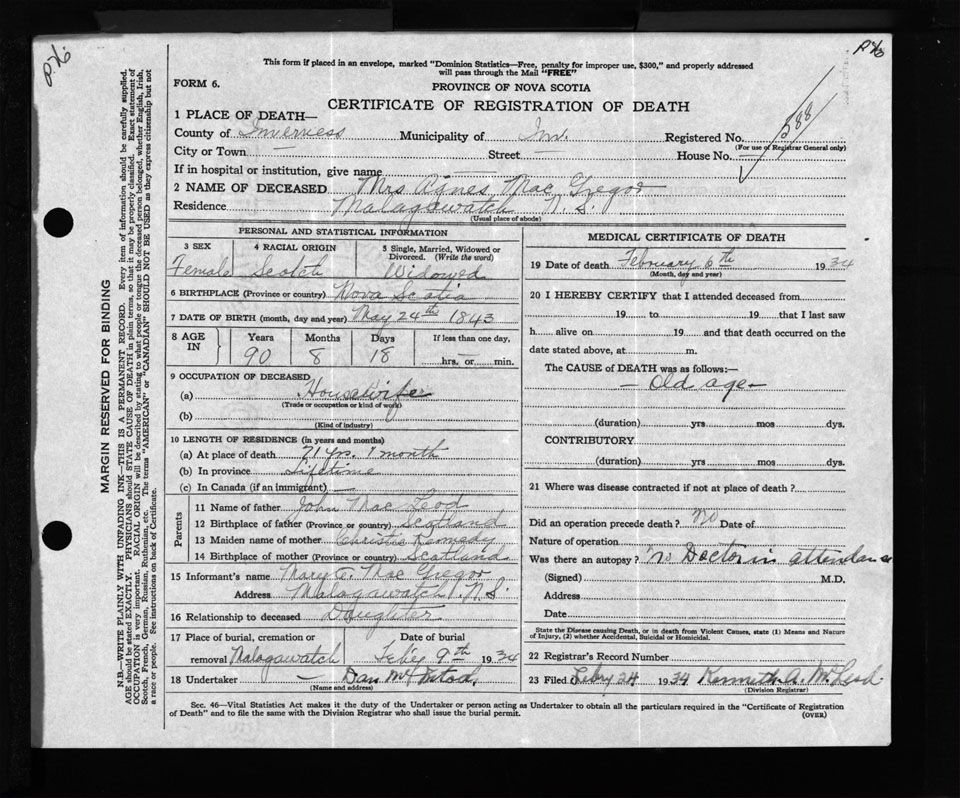 This form if placed in an envelope, marked "Dominion Statistics—Free, penalty for improper use, $300," and properly addressed
will pass through the Mail "FREE"
FORM 6.
PROVINCE OF NOVA SCOTIA
CERTIFICATE OF REGISTRATION OF DEATH
588
1 PLACE OF DEATH—
County of Inverness Municipality of Inv. Registered No.
(For use of Registrar General only)
City or Town — Street — House No. —
If in hospital or institution, give name —
2 NAME OF DECEASED Mrs Agnes Mac Gregor
Residence Malagawatch N. S.
(Usual place of abode)
PERSONAL AND STATISTICAL INFORMATION
3 SEX 4 RACIAL ORIGIN 5 Single, Married, Widowed or Divorced. (Write the word)
Female Scotch Widowed
6 BIRTHPLACE (Province or country) Nova Scotia
7 DATE OF BIRTH (month, day and year) May 24th 1843
8 AGE IN Years Months Days If less than one day,
90 8 18 hrs. or min.
9 OCCUPATION OF DECEASED
(a) Housewife
(Trade or occupation or kind of work)
(b)
(Kind of industry)
10 LENGTH OF RESIDENCE (in years and months)
(a) At place of death 71 yrs. 1 month
(b) In province Lifetime
(c) In Canada (if an immigrant) —
Parents
11 Name of father John Mac Leod
12 Birthplace of father (Province or country) Scotland
13 Maiden name of mother Christie Kennedy
14 Birthplace of mother (Province or country) Scotland
15 Informant's name Mary C. Mac Gregor
Address Malagawatch N. S.
16 Relationship to deceased Daughter
17 Place of burial, cremation or Date of burial
removal Malagawatch Feb'y 9th 1934
18 Undertaker — Dan
(Name and address)
MEDICAL CERTIFICATE OF DEATH
19 Date of death February 6th 1934
(Month, day and year)
20 I HEREBY CERTIFY that I attended deceased from
19 to 19 that I last saw
h alive on 19 and that death occurred on the
date stated above, at m.
The CAUSE of DEATH was as follows:—
— Old age —
(duration) yrs mos dys.
CONTRIBUTORY
(duration) yrs mos dys.
21 Where was disease contracted if not at place of death?
Did an operation precede death? no Date of
Nature of operation
Was there an autopsy? no Doctor in attendance
(Signed) M.D.
Address
Date
State the Disease causing Death, or in death from Violent Causes, state (1) Means and Nature
of Injury, (2) whether Accidental, Suicidal or Homicidal.
22 Registrar's Record Number
23 Filed Febry 24 1934 Kenneth A. McLeod
(Division Registrar)
Sec. 46—Vital Statistics Act makes it the duty of the Undertaker or person acting as Undertaker to obtain all the particulars required in the "Certificate of Registration
of Death" and to file the same with the Division Registrar who shall issue the burial permit.
(OVER)
MARGIN RESERVED FOR BINDING
N.B.—WRITE PLAINLY WITH UNFADING INK—THIS IS A PERMANENT RECORD. Every item of information should be carefully supplied.
AGE should be stated EXACTLY. PHYSICIANS should STATE CAUSE OF DEATH in plain terms, so that it may be properly classified. Exact statement of
OCCUPATION is very important. RACIAL ORIGIN will be described by stating to what people or tongue the deceased person belonged, whether English, Irish,
Scotch, French, German, Russian, Ruthenian, etc. The terms "AMERICAN" or "CANADIAN" SHOULD NOT BE USED, as they express citizenship but not
a race or people. See instructions on back of Certificate.